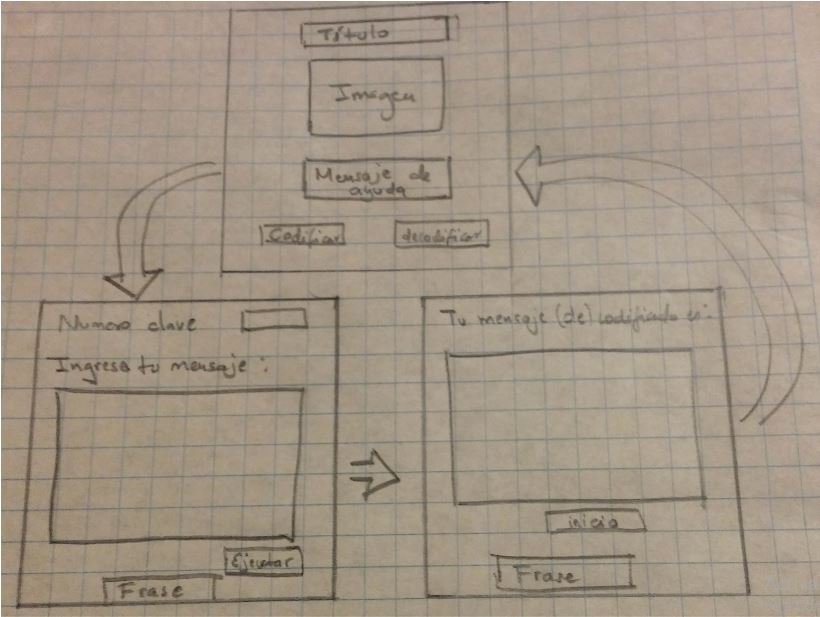 Título
Imagen
Mensaje de
ayuda
Codificar
decodificar
Numero clave
Ingresa tu mensaje:
Ejecutar
Frase
Tu mensaje (de) codificado es:
inicio
Frase